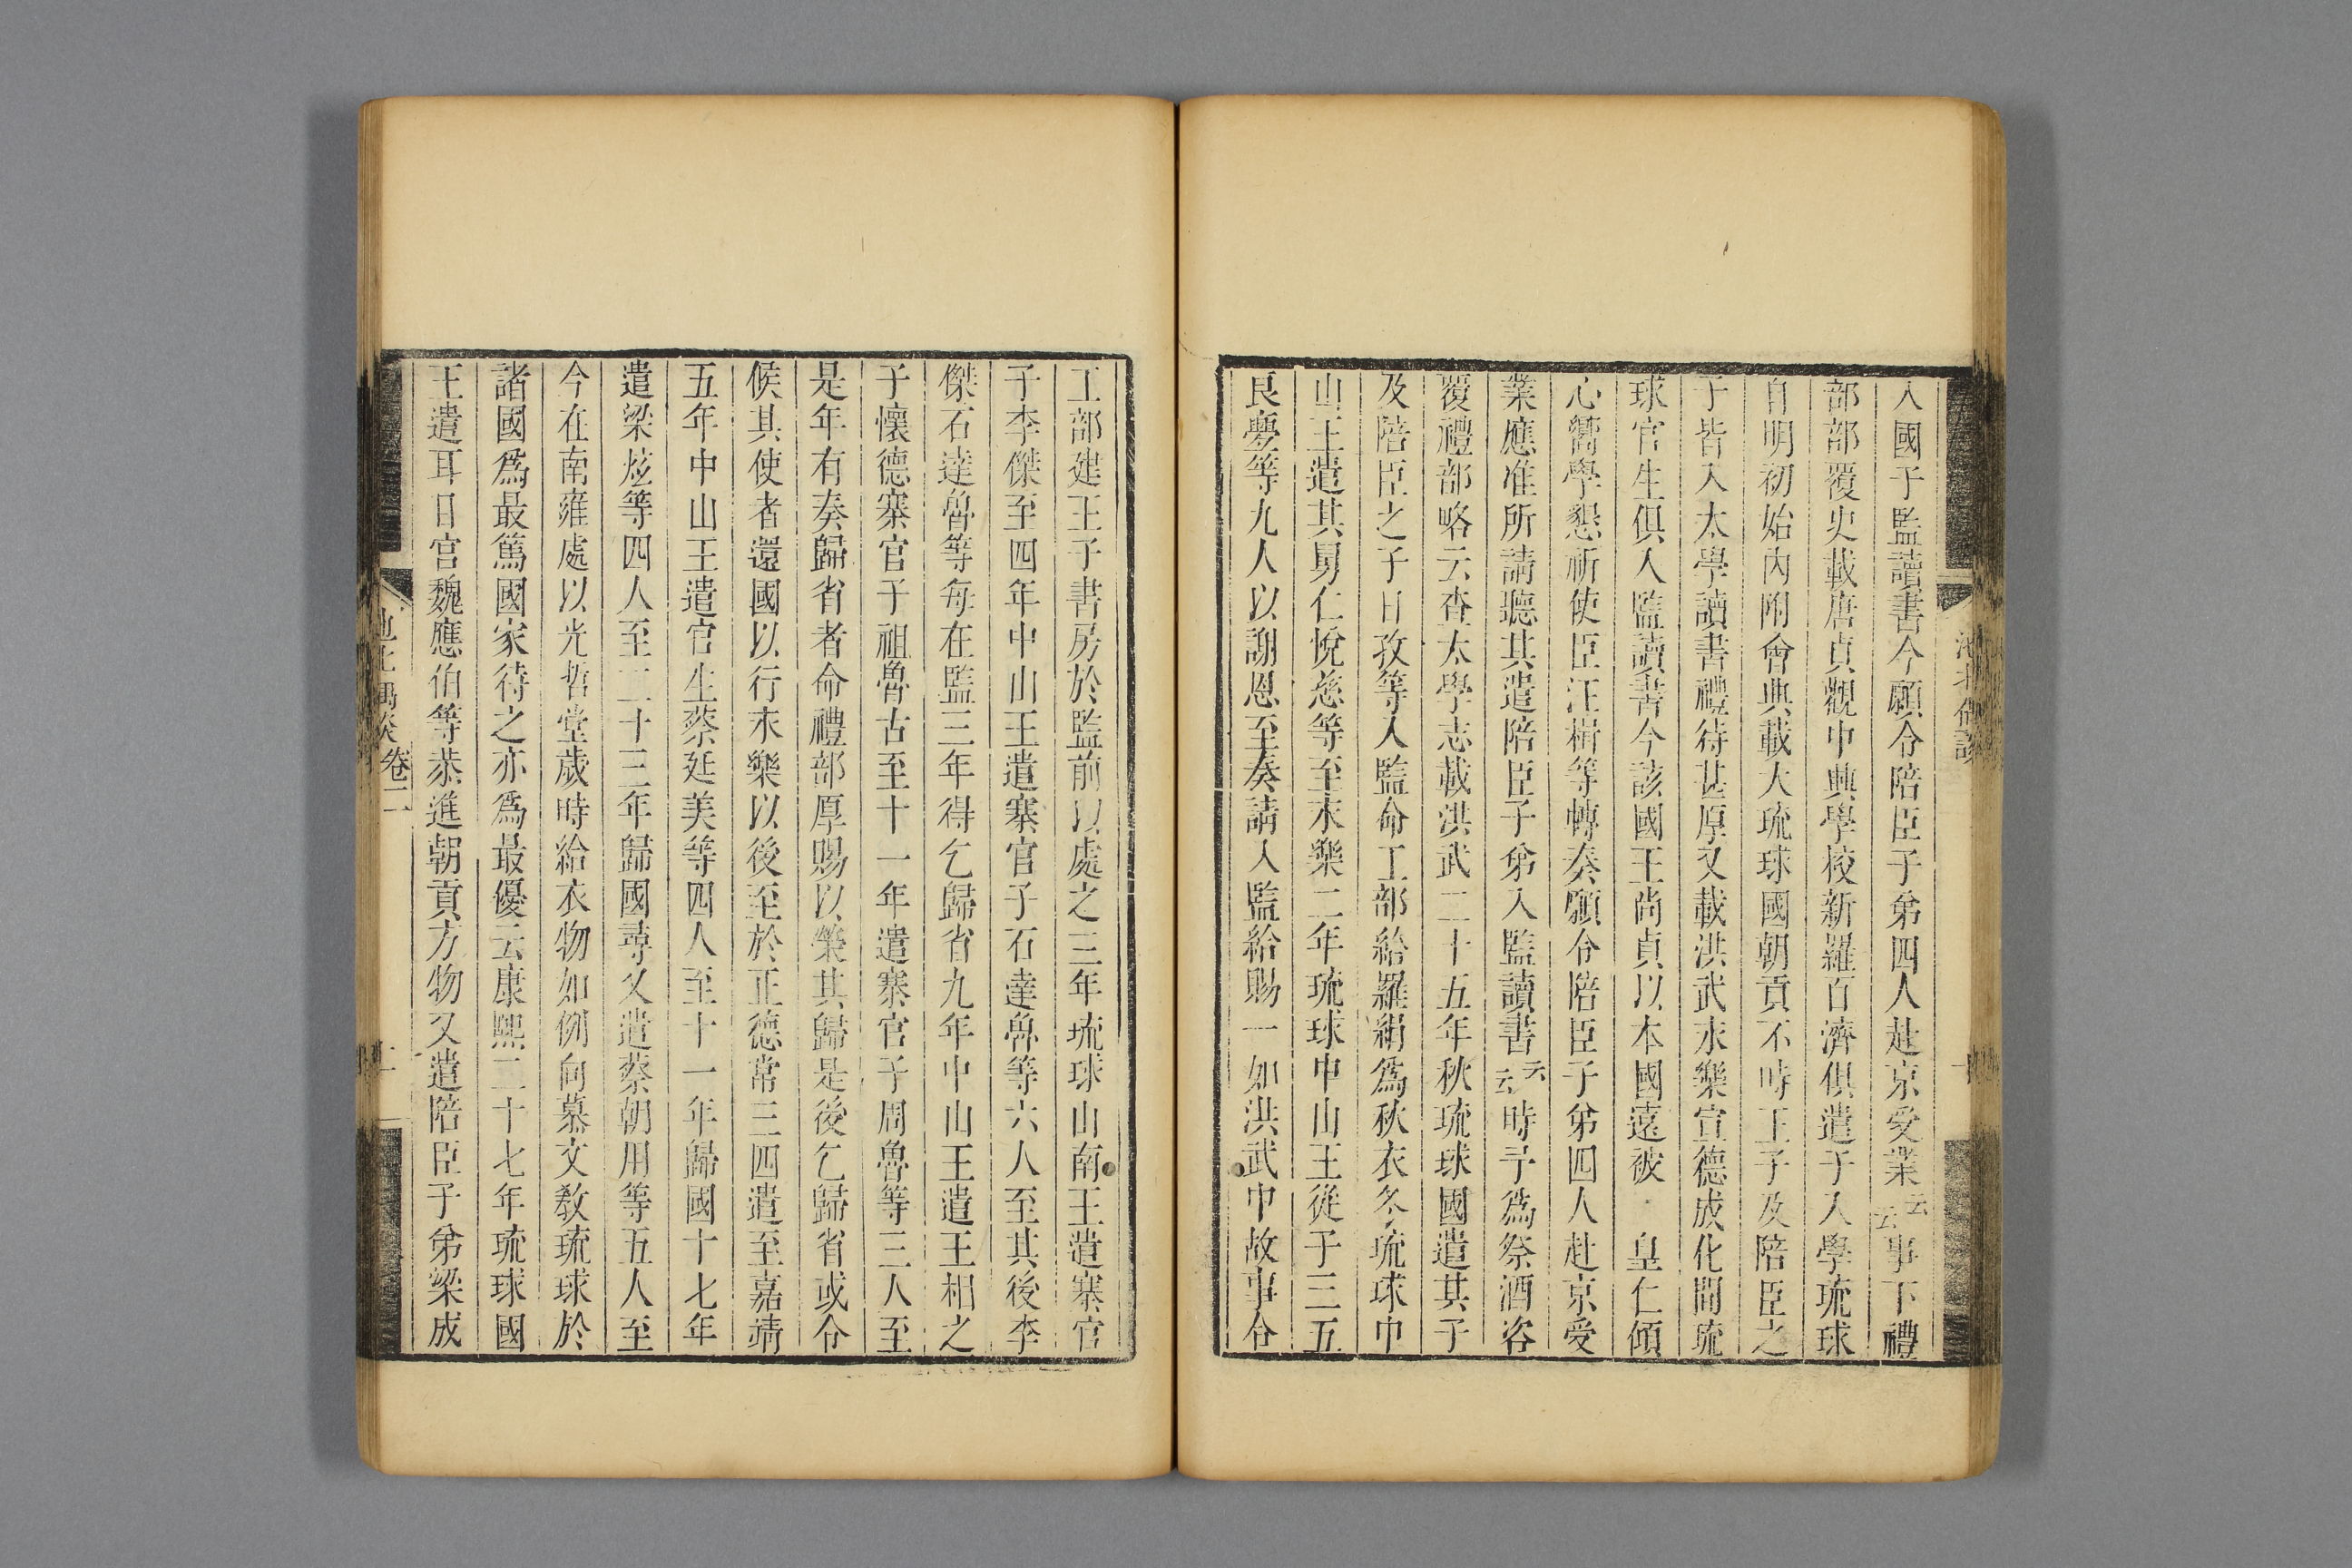 入國子監讀書今願令陪臣子弟四人赴京受業云云事下禮
部部覆史載唐貞觀中興學校新羅百濟俱遣子入學琉球
自明初始內附會典載大琉球國朝貢不時王子及陪臣之
子皆入太學讀書禮待甚厚又載洪武永樂宣德成化間琉
球官生俱入監讀書今該國王尚貞以本國遠被 皇仁傾
心嚮學懇祈使臣汪楫等轉奏願令陪臣子弟四人赴京受
業應准所請聽其遣陪臣子弟入監讀書云云時予爲祭酒咨
覆禮部略云查太學志載洪武二十五年秋琉球國遣其子
及陪臣之子日孜等入監命工部給羅絹爲秋衣冬琉球中
山王遣其舅仁悅慈等至永樂二年琉球中山王從子三五
良亹等九人以謝恩至奏請入監給賜一如洪武中故事令
工部建王子書房於監前以處之三年琉球山南王遣寨官
子李傑至四年中山王遣寨官子石達魯等六人至其後李
傑石達魯等每在監三年得乞歸省九年中山王遣王相之
子懷德寨官子祖魯古至十一年遣寨官子周魯等三人至
是年有奏歸省者命禮部厚賜以榮其歸是後乞歸省或令
候其使者還國以行永樂以後至於正德常三四遣至嘉靖
五年中山王遣官生蔡廷美等四人至十一年歸國十七年
遣梁炫等四人至二十三年歸國尋又遣蔡朝用等五人至
今在南雍處以光哲堂歲時給衣物如例向慕文敎琉球於
諸國爲最篤國家待之亦爲最優云康熙二十七年琉球國
王遣耳目官魏應伯等恭進朝貢方物又遣陪臣子弟梁成
池北偶談卷二